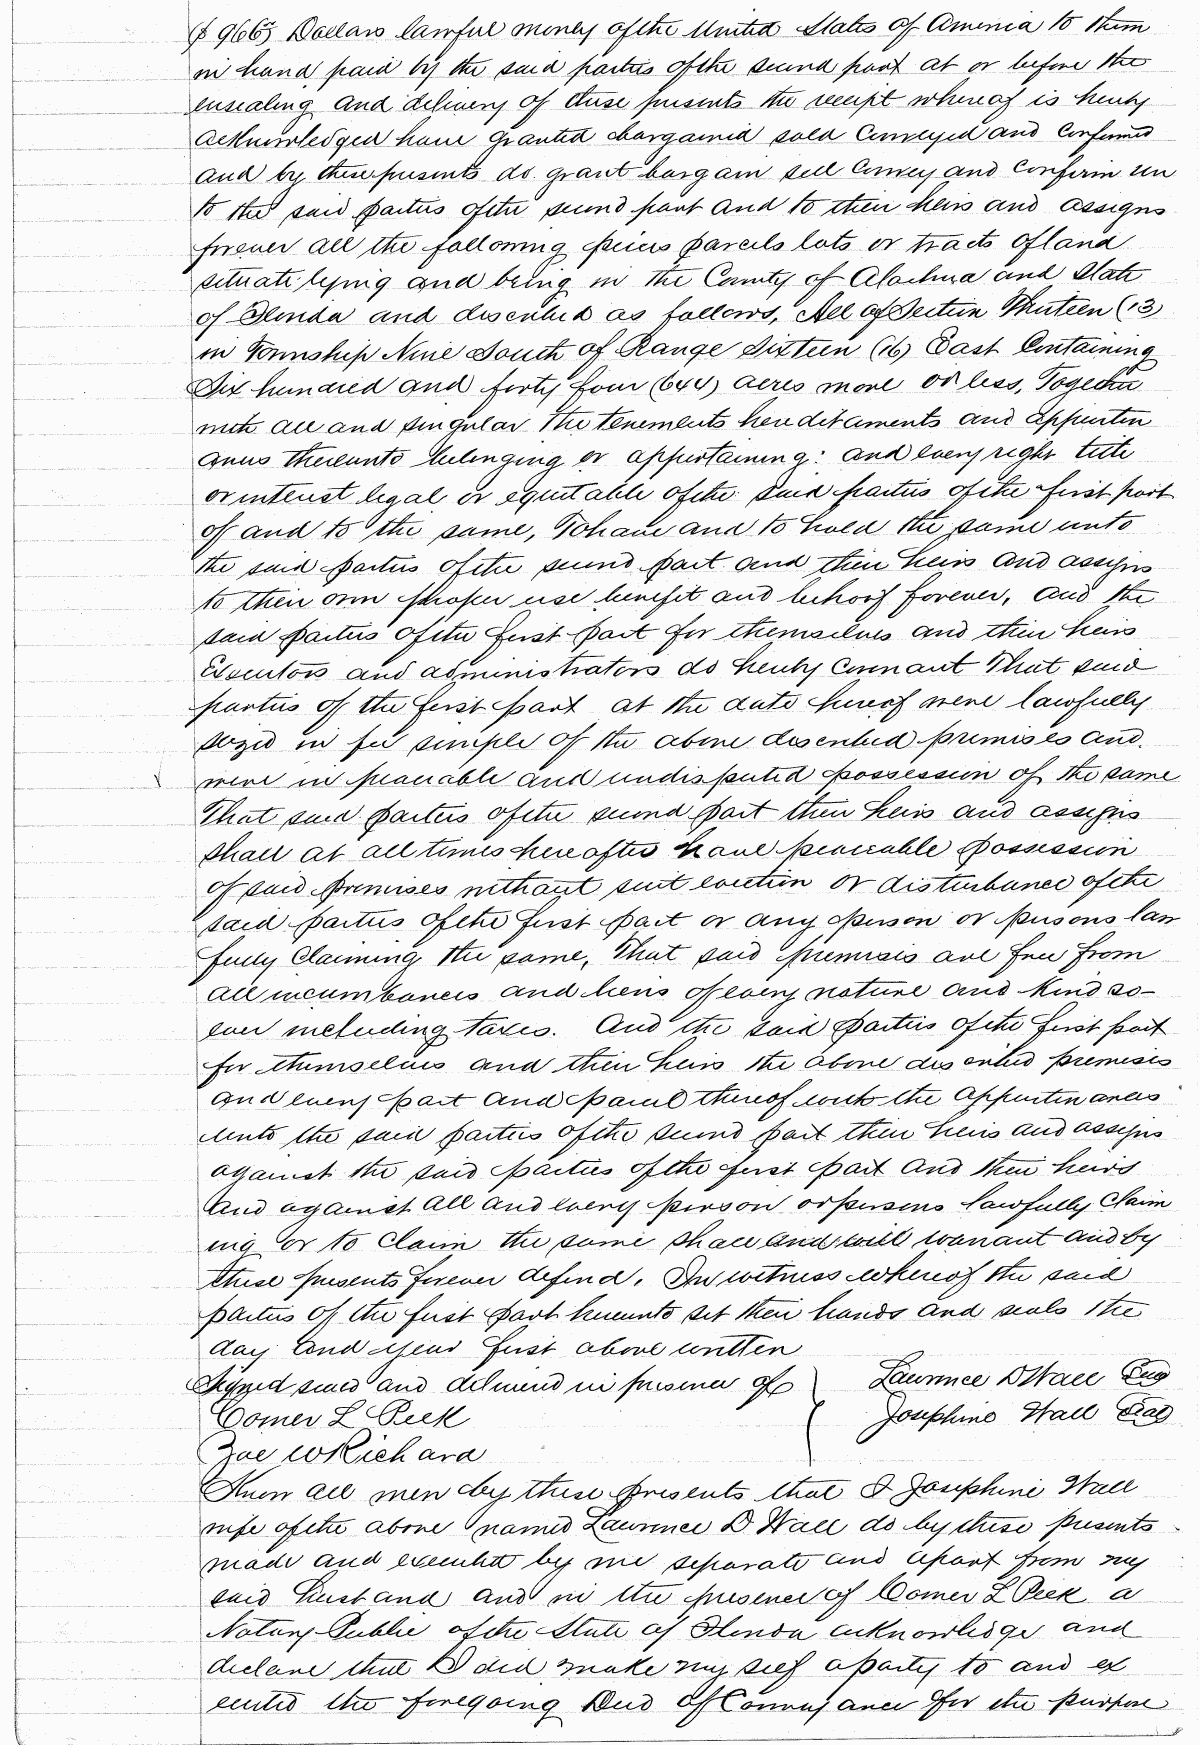 ($9665 Dollars lawful money of the United States of America to them
in hand paid by the said parties of the second part at or before the
ensealing and delivery of these presents the receipt whereof is hereby
acknowledged have granted bargained sold Conveyed and Confirmed
and by these presents do grant bargain sell Convey and Confirm un
to the said parties of the second part and to their heirs and assigns
forever all the following pieces parcels lots or tracts of land
situate lying and being in the County of Alachua and State
of Florida and described as follows, All of Section Thirteen (13)
in Township Nine South of Range Sixteen (16) East Containing
Six hundred and forty four (644) acres more or less, Together
with all and singular the tenements hereditaments and appurten
ances thereunto belonging or appertaining: and every right title
or interest legal or equitable of the said parties of the first part
of and to the same, To have and to hold the same unto
the said parties of the second part and their heirs and assigns
to their own proper use benefit and behoof forever, and the
said parties of the first part for themselves and their heirs
Executors and administrators do hereby Covenant That said
parties of the first part at the date hereof were lawfully
siezed in fee simple of the above described premises and
were in peaceable and undisputed possession of the same
That said parties of the second part their heirs and assigns
shall at all times hereafter have peaceable possession
of said premises without suit eviction or disturbance of the
said parties of the first part or any person or persons law
fully Claiming the same, That said premises are free from
all incumbances and liens of every nature and kind so-
ever including taxes. And the said parties of the first part
for themselves and their heirs the above described premises
and every part and parcel thereof with the appurtenances
unto the said parties of the second part their heirs and assigns
against the said parties of the first part and their heirs
and against all and every person or persons lawfully Claim
ing or to claim the same shall and will warrant and by
these presents forever defend. In witness whereof the said
parties of the first part hereunto set their hands and seals the
day and year first above written
Signed sealed and delivered in presence of Lawrence D Wall Seal
Comer L Peek Josephine Wall Seal
Zae W Richard
Know all men by these presents that I Josephine Wall
wife of the above named Lawrence D Wall do by these presents
made and executed by me separate and apart from my
said husband and in the presence of Comer L Peek a
Notary Public of the State of Florida acknowledge and
declare that I did make my self a party to and ex
ecuted the foregoing Deed of Conveyance for the purpose